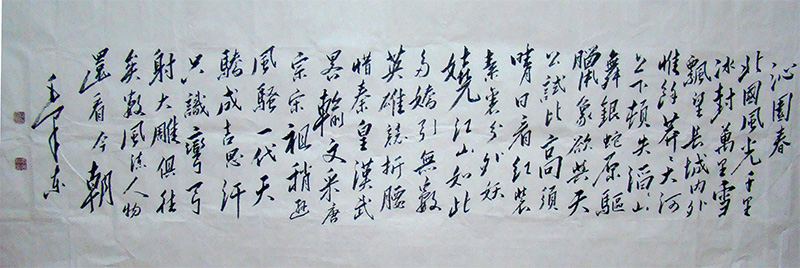 沁園春
北國風光千里
冰封萬里雪
飄望長城內外
惟餘莽々大河
上下頓失滔々山
舞銀蛇原驅
臘象欲與天
公試比高須
晴日看紅裝
素裹分外妖
嬈江山如此
多嬌引無數
英雄競折腰
惜秦皇漢武
畧輸文采唐
宗宋祖稍遜
風騷一代天
驕成吉思汗
只識彎弓
射大雕俱往
矣數風流人物
還看今朝
毛澤東